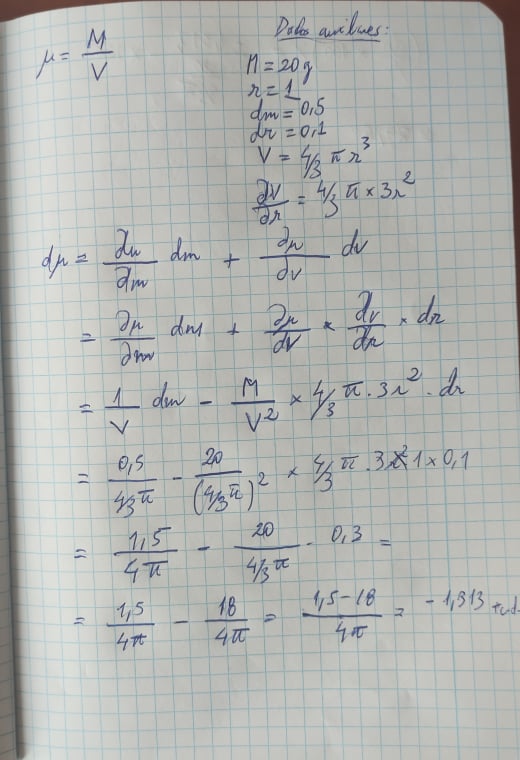 μ = M/V
Dados auxiliares:
M = 20g
r = 1
dm = 0,5
dr = 0,1
V = 4/3 π r³
∂V/∂r = 4/3 π × 3r²
dμ = ∂μ/∂m dm + ∂μ/∂v dv
= ∂μ/∂m dm + ∂μ/∂V × ∂v/∂r × dr
= 1/V dm - M/V² × 4/3 π . 3r² . dr
= 0,5/(4/3 π) - 20/(4/3 π)² × 4/3 π . 3 1 × 0,1
= 1,5/4π - 20/(4/3 π) . 0,3 =
= 1,5/4π - 18/4π = (1,5-18)/4π = -1,313